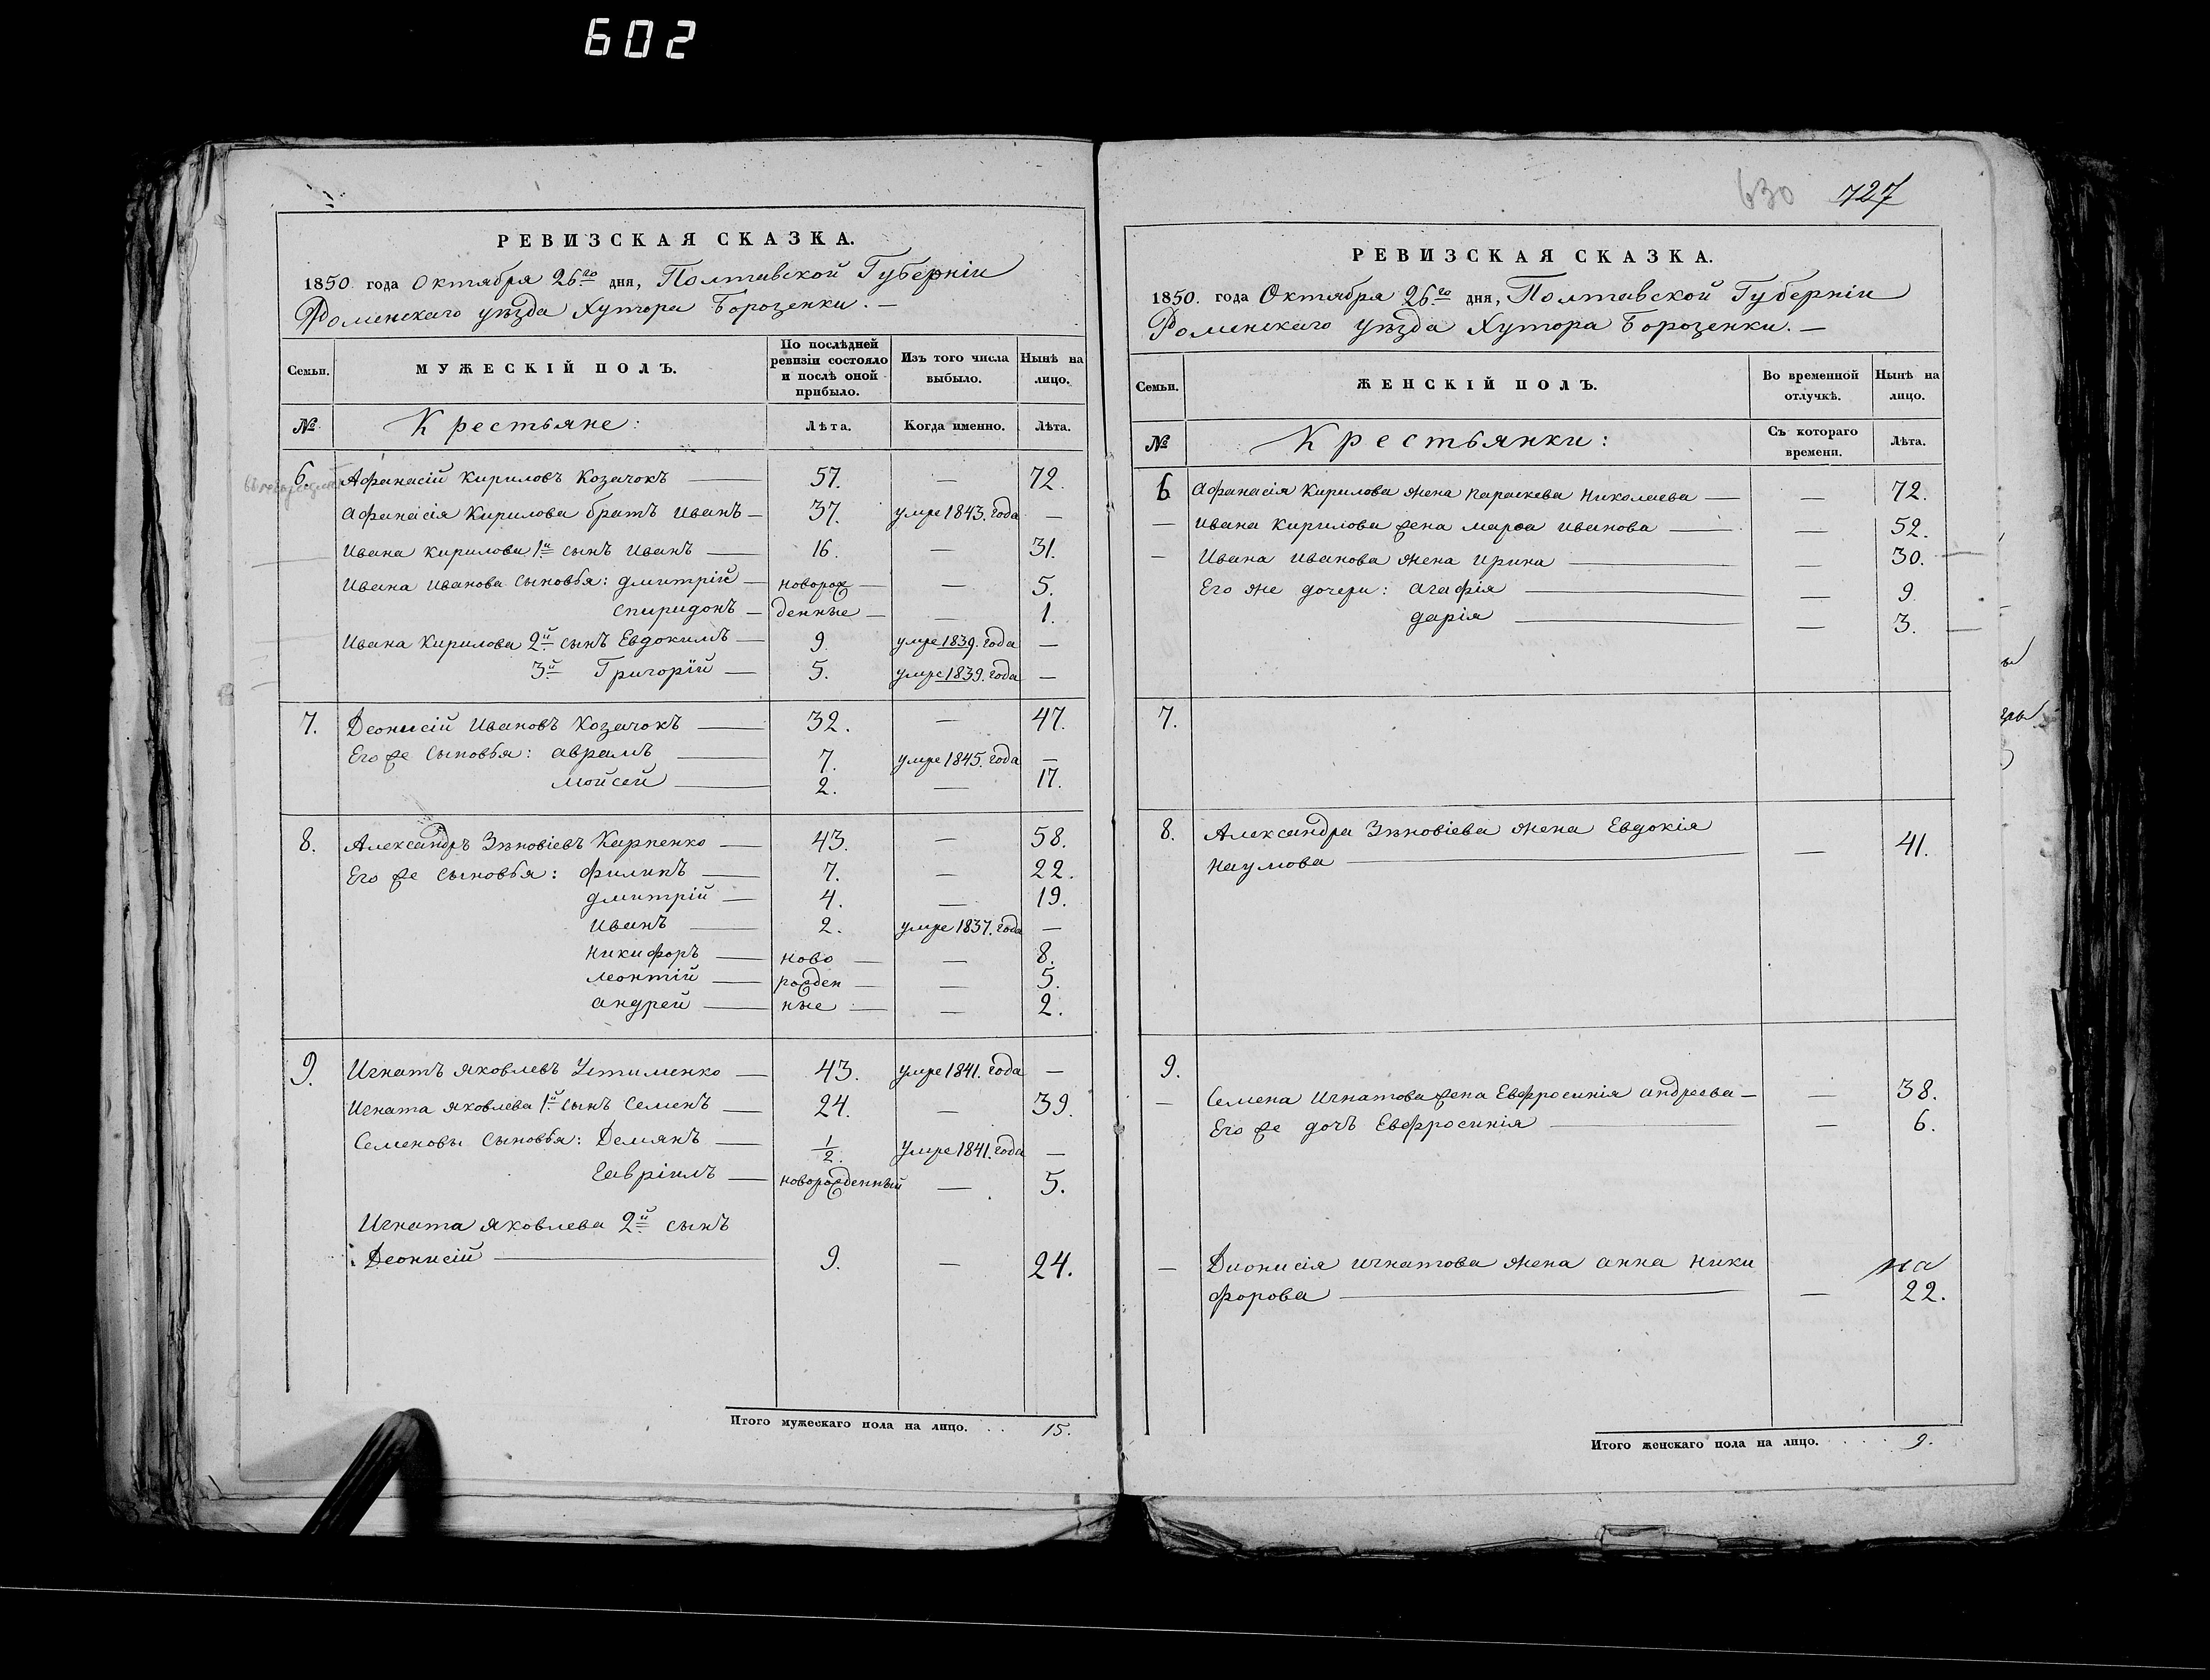 602
РЕВИЗСКАЯ СКАЗКА.
1850. года Октября 26го дня, Полтавской Губерніи
Роменскаго уѣзда Хутора Борозенки. —
Семьи.
МУЖЕСКІЙ ПОЛЪ.
По послѣдней ревизіи состояло и послѣ оной прибыло.
Изъ того числа выбыло.
Нынѣ на лицо.
№
Крестьяне:
Лѣта.
Когда именно.
Лѣта.
6. Афанасій Кириловъ Козачокъ 57. — 72.
Афанасія Кирилова братъ Иванъ — 37. умре 1843. года —
Ивана Кирилова 1й сынъ Иванъ — 16. — 31.
Ивана Иванова сыновья: Дмитрій — новорож — — 5.
Спиридонъ — денные — — 1.
Ивана Кирилова 2й сынъ Евдокимъ — 9. умре 1839. года —
3й Григорій — 5. умре 1839. года —
7. Деонисій Ивановъ Козачокъ — 32. — 47.
Его же сыновья: Аврамъ — 7. умре 1845. года —
Мойсей — 2. — 17.
8. Александръ Зѣновіевъ Карпенко — 43. — 58.
Его же сыновья: Филипъ — 7. — 22.
Дмитрій — 4. — 19.
Иванъ — 2. умре 1837. года —
Никифоръ — ново — — 8.
Леонтій — рожден — — 5.
Андрей — ные — — 2.
9. Игнатъ Яковлевъ Устименко — 43. умре 1841. года —
Игната Яковлева 1й сынъ Семенъ — 24. — 39.
Семеновы сыновья: Демянъ — 1/2. умре 1841. года —
Гавріилъ — новорожденный — 5.
Игната Яковлева 2й сынъ
Деонисій — 9. — 24.
Итого мужескаго пола на лицо. . . 15.
630 727
РЕВИЗСКАЯ СКАЗКА.
1850. года Октября 26го дня, Полтавской Губерніи
Роменскаго уѣзда Хутора Борозенки. —
Семьи.
ЖЕНСКІЙ ПОЛЪ.
Во временной отлучкѣ.
Нынѣ на лицо.
№
Крестьянки:
Съ котораго времени.
Лѣта.
6 Афанасія Кирилова жена Параскева Николаева — — 72.
— Ивана Кирилова жена Марѳа Иванова — — 52.
— Ивана Иванова жена Ирина — — 30.
Его же дочери: Агафія — — 9
Дарія — — 3.
7.
8. Александра Зѣновіева жена Евдокія
Наумова — — 41.
9.
— Семена Игнатова жена Евфросинія Андреева — — 38.
Его же дочь Евфросинія — — 6.
— Дионисія Игнатова жена Анна Ники
форова — — 22.
Итого женскаго пола на лицо. . . . . 9.